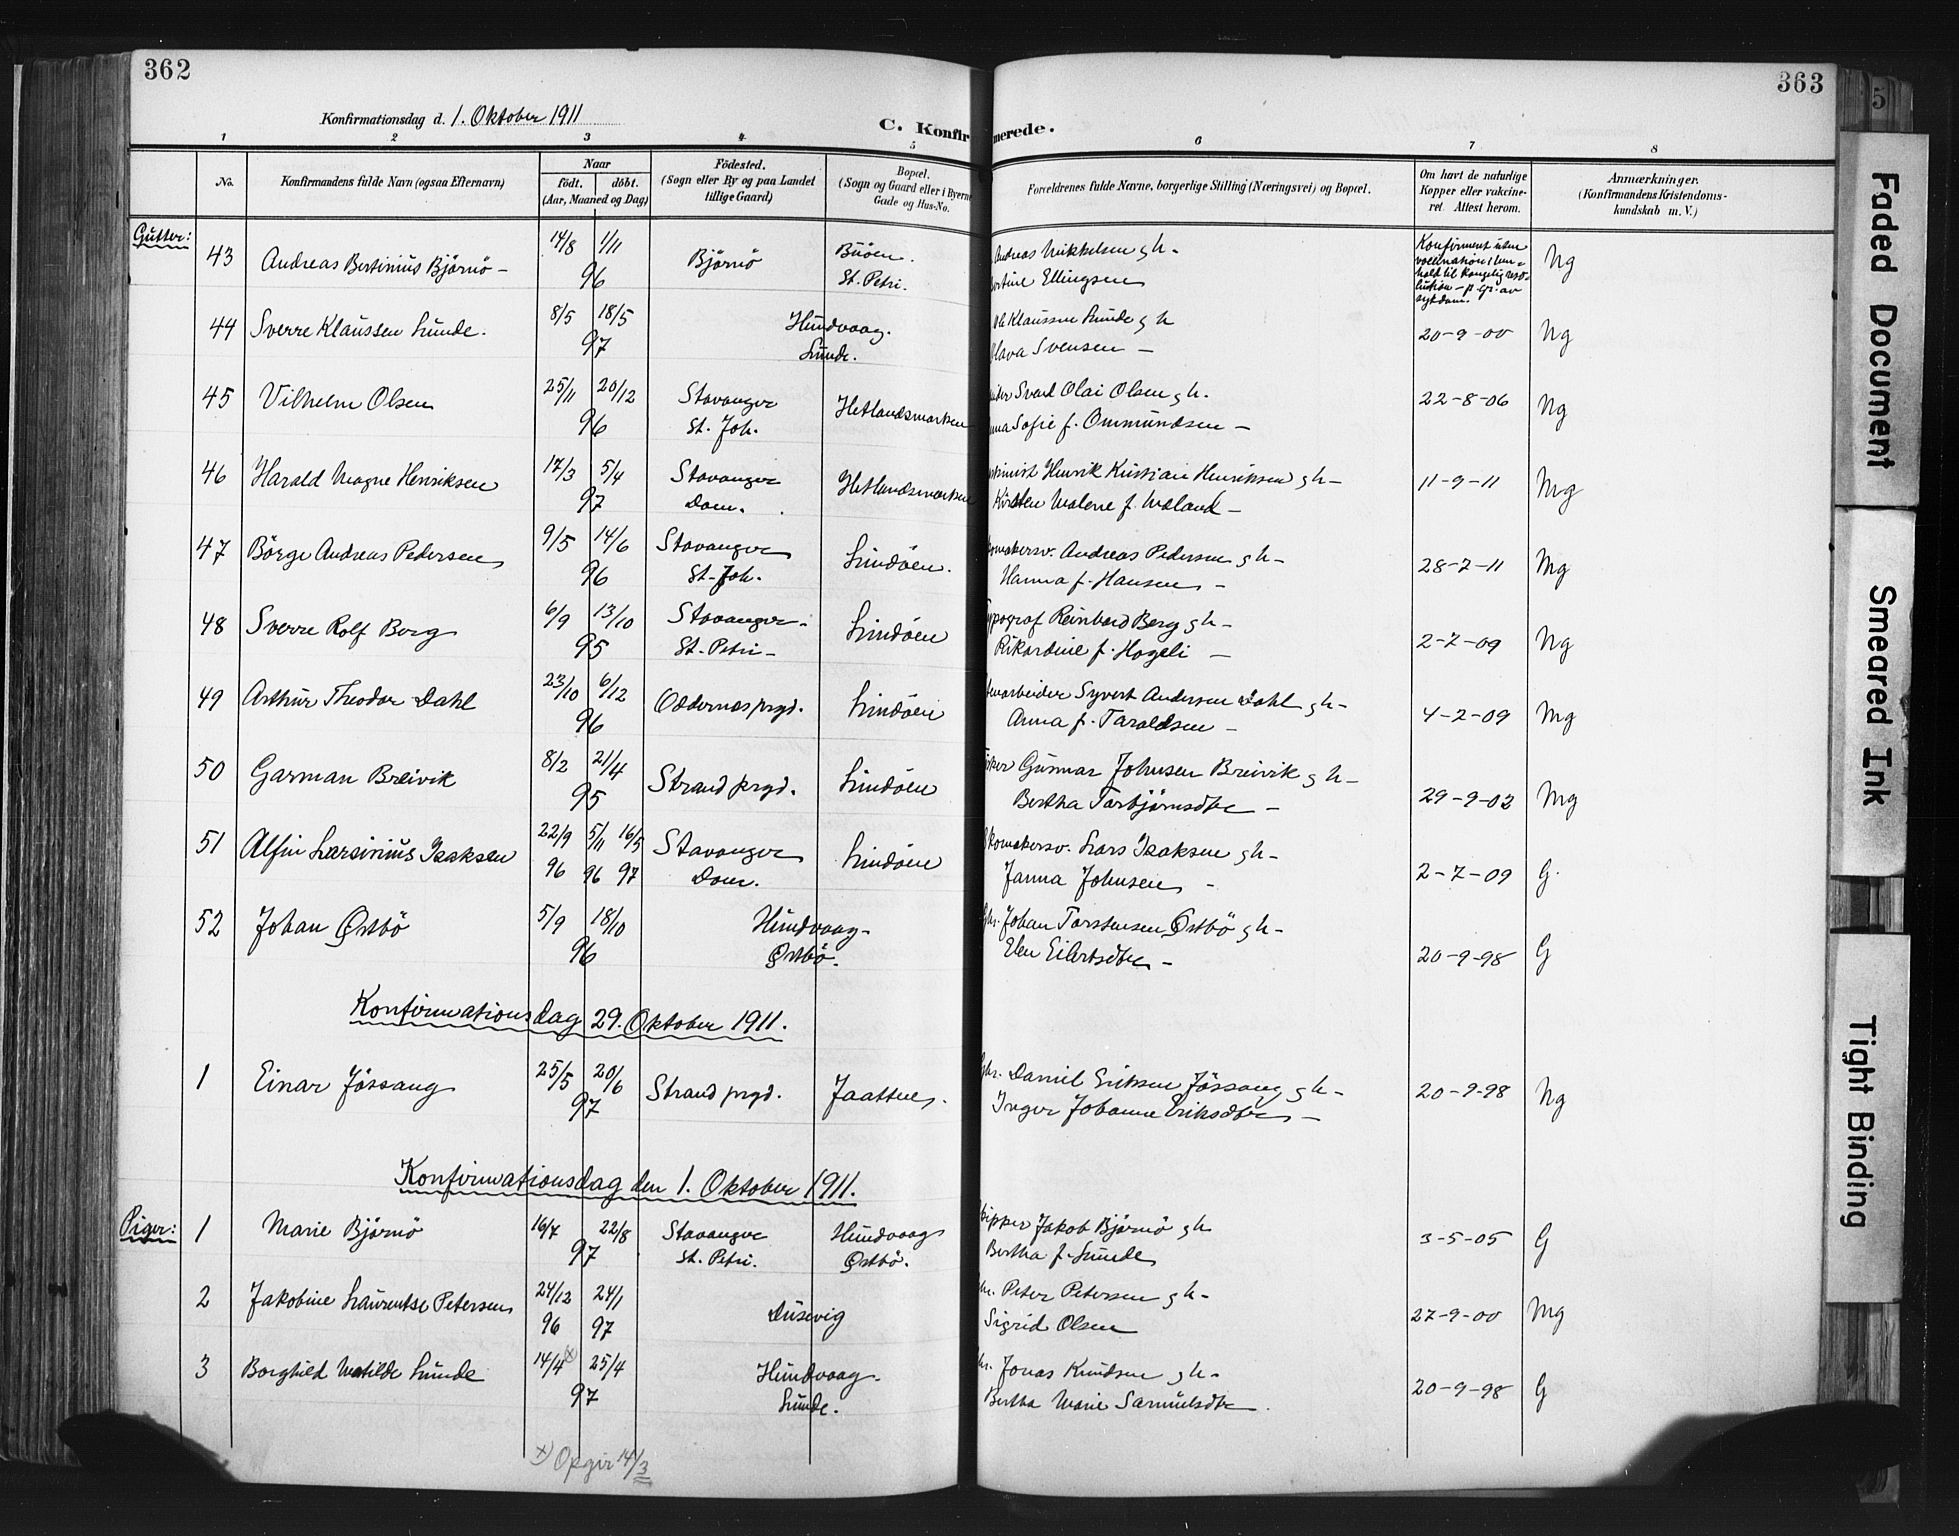 362
363
Konfirmationsdag d. 1. Oktober 1911
C. Konfirmerede.
1 2 3 4 5 6 7 8
No.
Konfirmandens fulde Navn (ogsaa Efternavn)
Naar
födt. döbt.
(Aar, Maaned og Dag)
Födested.
(Sogn eller By og paa Landet
tillige Gaard)
Bopæl.
(Sogn og Gaard eller i Byerne
Gade og Hus-No.
Forældrenes fulde Navne, borgerlige Stilling (Næringsvei) og Bopæl.
Om havt de naturlige
Kopper eller vakcine-
ret. Attest herom.
Anmærkninger.
(Konfirmandens Kristendoms-
kundskab m. V.)
Gutter:
43 Andreas Bertinius Björnö – 14/8 1/11 96 Björnö Buöen. St. Petri.
Andreas Mikkelsen g h –
Ellingsen
Konfirmert uten
vaccination i hen-
hold til kongelig reso-
lution – p. gr. av
sykdom.
Mg
44 Sverre Klaussen Lunde. 8/5 18/5 97 Hundvaag. Lunde.
Ole Klaussen Lunde g h
Olava Svensen –
20-9-00 Mg
45 Vilhelm Olsen 25/11 20/12 96 Stavanger St. Joh. Hetlandsmarken
Svend Olai Olsen g h.
Sofie f. Ommundsen –
22-8-06 Mg
46 Harald Magne Henriksen 17/3 5/4 97 Stavanger Dom. Hetlandsmarken
Henrik Kristian Henriksen g h –
Kirsten Malene f. Maland –
11-9-11 Mg
47 Börge Andreas Pedersen 9/5 14/6 96 Stavanger St. Joh. Lindöen.
Andreas Pedersen g h –
Hanna f. Hansen –
28-7-11 Mg
48 Sverre Rolf Berg 6/9 13/10 95 Stavanger – St. Petri – Lindöen
Typograf Reinhard Berg g h –
Rikardine f. Hogeli –
2-7-09 Mg
49 Arthur Theodor Dahl 23/10 6/12 96 Oddernes prgd. Lindöen
Syvert Andersen Dahl g h –
Anna f. Taraldsen –
4-2-09 Mg
50 Garman Breivik 8/2 21/4 95 Strand prgd. Lindöen
Gunnar Johnsen Breivik g h –
Bertha Torbjörnsdtr –
29-9-03 Mg
51 Alfin Larsinius Isaksen 22/9 96 5/11 96 16/5 97 Stavanger Dom. Lindöen
Skomakersv. Lars Isaksen g h –
Janna Johnsen –
2-7-09 G.
52 Johan Østbö 5/9 18/10 96 Hundvaag – Østbö.
Johan Torstensen Østbö g h –
Elen Eilertsdtr –
20-9-98 G
Konfirmationsdag 29. Oktober 1911.
1 Einar Jössang 25/5 20/6 97 Strand prgd. Jaattnes.
Daniel Eriksen Jössang g h –
Inger Johanne Eriksdtr –
20-9-98 Mg
Konfirmationsdag den 1. Oktober 1911.
Piger:
1 Marie Björnö 16/7 22/8 97 Stavanger St. Petri. Hundvaag Østbö.
Jakob Björnö g h
Bertha f. Lunde
3-5-05 G
2 Jakobine Laurentse Petersen 24/12 96 24/1 97 Dusevig
Peter Petersen g h –
Sigrid Olsen
27-9-00 Mg
3 Borghild Matilde Lunde 14/4 x) 25/4 97 Hundvaag. Lunde.
Jonas Knudsen g h –
Bertha Marie Samuelsdtr.
20-9-98 G
x) Opgir 14/3
5
Faded Document
Smeared Ink
Tight Binding